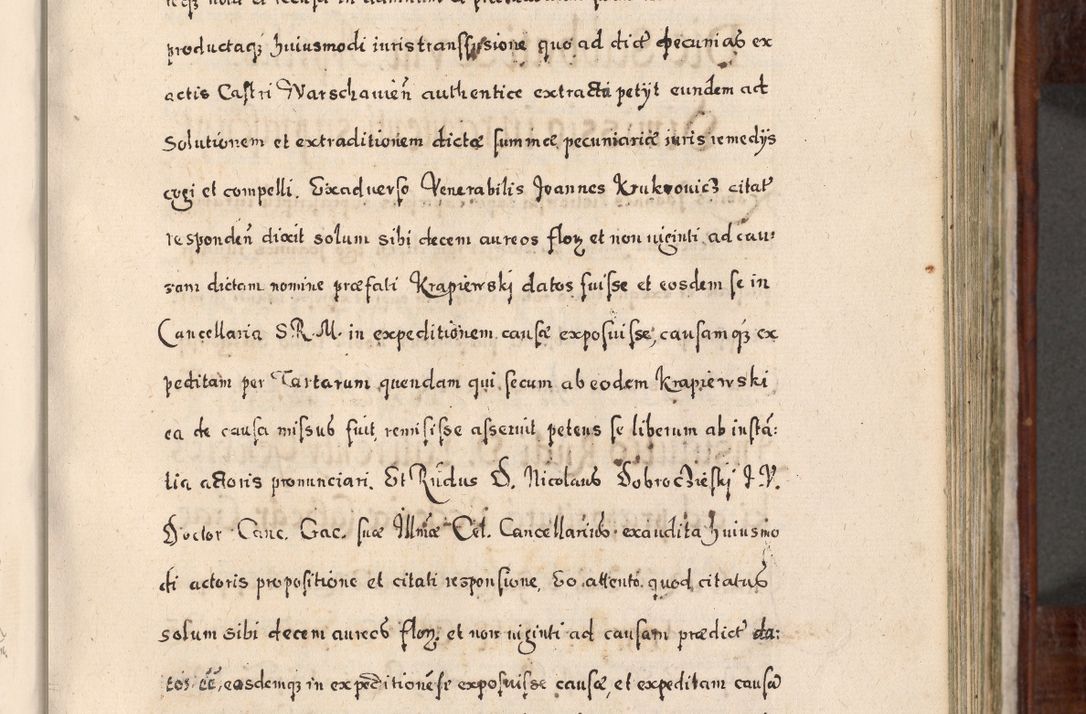 productaqȝ huiusmodi iuris transfusione quo ad dict pecunias ex
actis Castri Warschauien̄ authentice extracta petijt eundem ad
Solutionem et extraditionem dictæ summæ pecuniariæ iuris remedijs
cogi et compelli. Exaduerso Venerabilis Joannes Krukowicz citat
responden̄ dixit solum sibi decem aureos flor et non uiginti ad cau:
sam dictam nomine præfati Krapiewski datos fuisse et eosdem se in
Cancellaria S.R.M. in expeditionem causæ exposuisse, causamqȝ ex
peditam per Tartarum quendam qui secum ab eodem Krapiewski
ea de causa missus fuit, remisisse asseruit, petens se liberum ab instā:
tia actoris pronunciari. Et Rn̄dus D. Nicolaus Dobrocżieski J.V.
Doctor Canc. Gac. suæ Illmæ Cel. Cancellarius exaudita huiusmo
di actoris propositione et citati responsione, Eo attento quod citatus
solum sibi decem aureos flor, et non uiginti ad causam prædict da:
tos eē, eosdemqȝ in expeditionē se exposuisse causæ, et expeditam causā